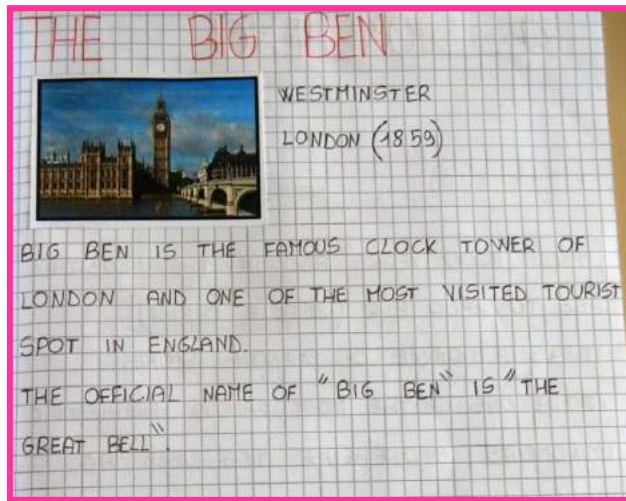 THE BIG BEN
WESTMINSTER
LONDON (1859)
BIG BEN IS THE FAMOUS CLOCK TOWER OF
LONDON AND ONE OF THE MOST VISITED TOURIST
SPOT IN ENGLAND.
THE OFFICIAL NAME OF "BIG BEN" IS "THE
GREAT BELL".